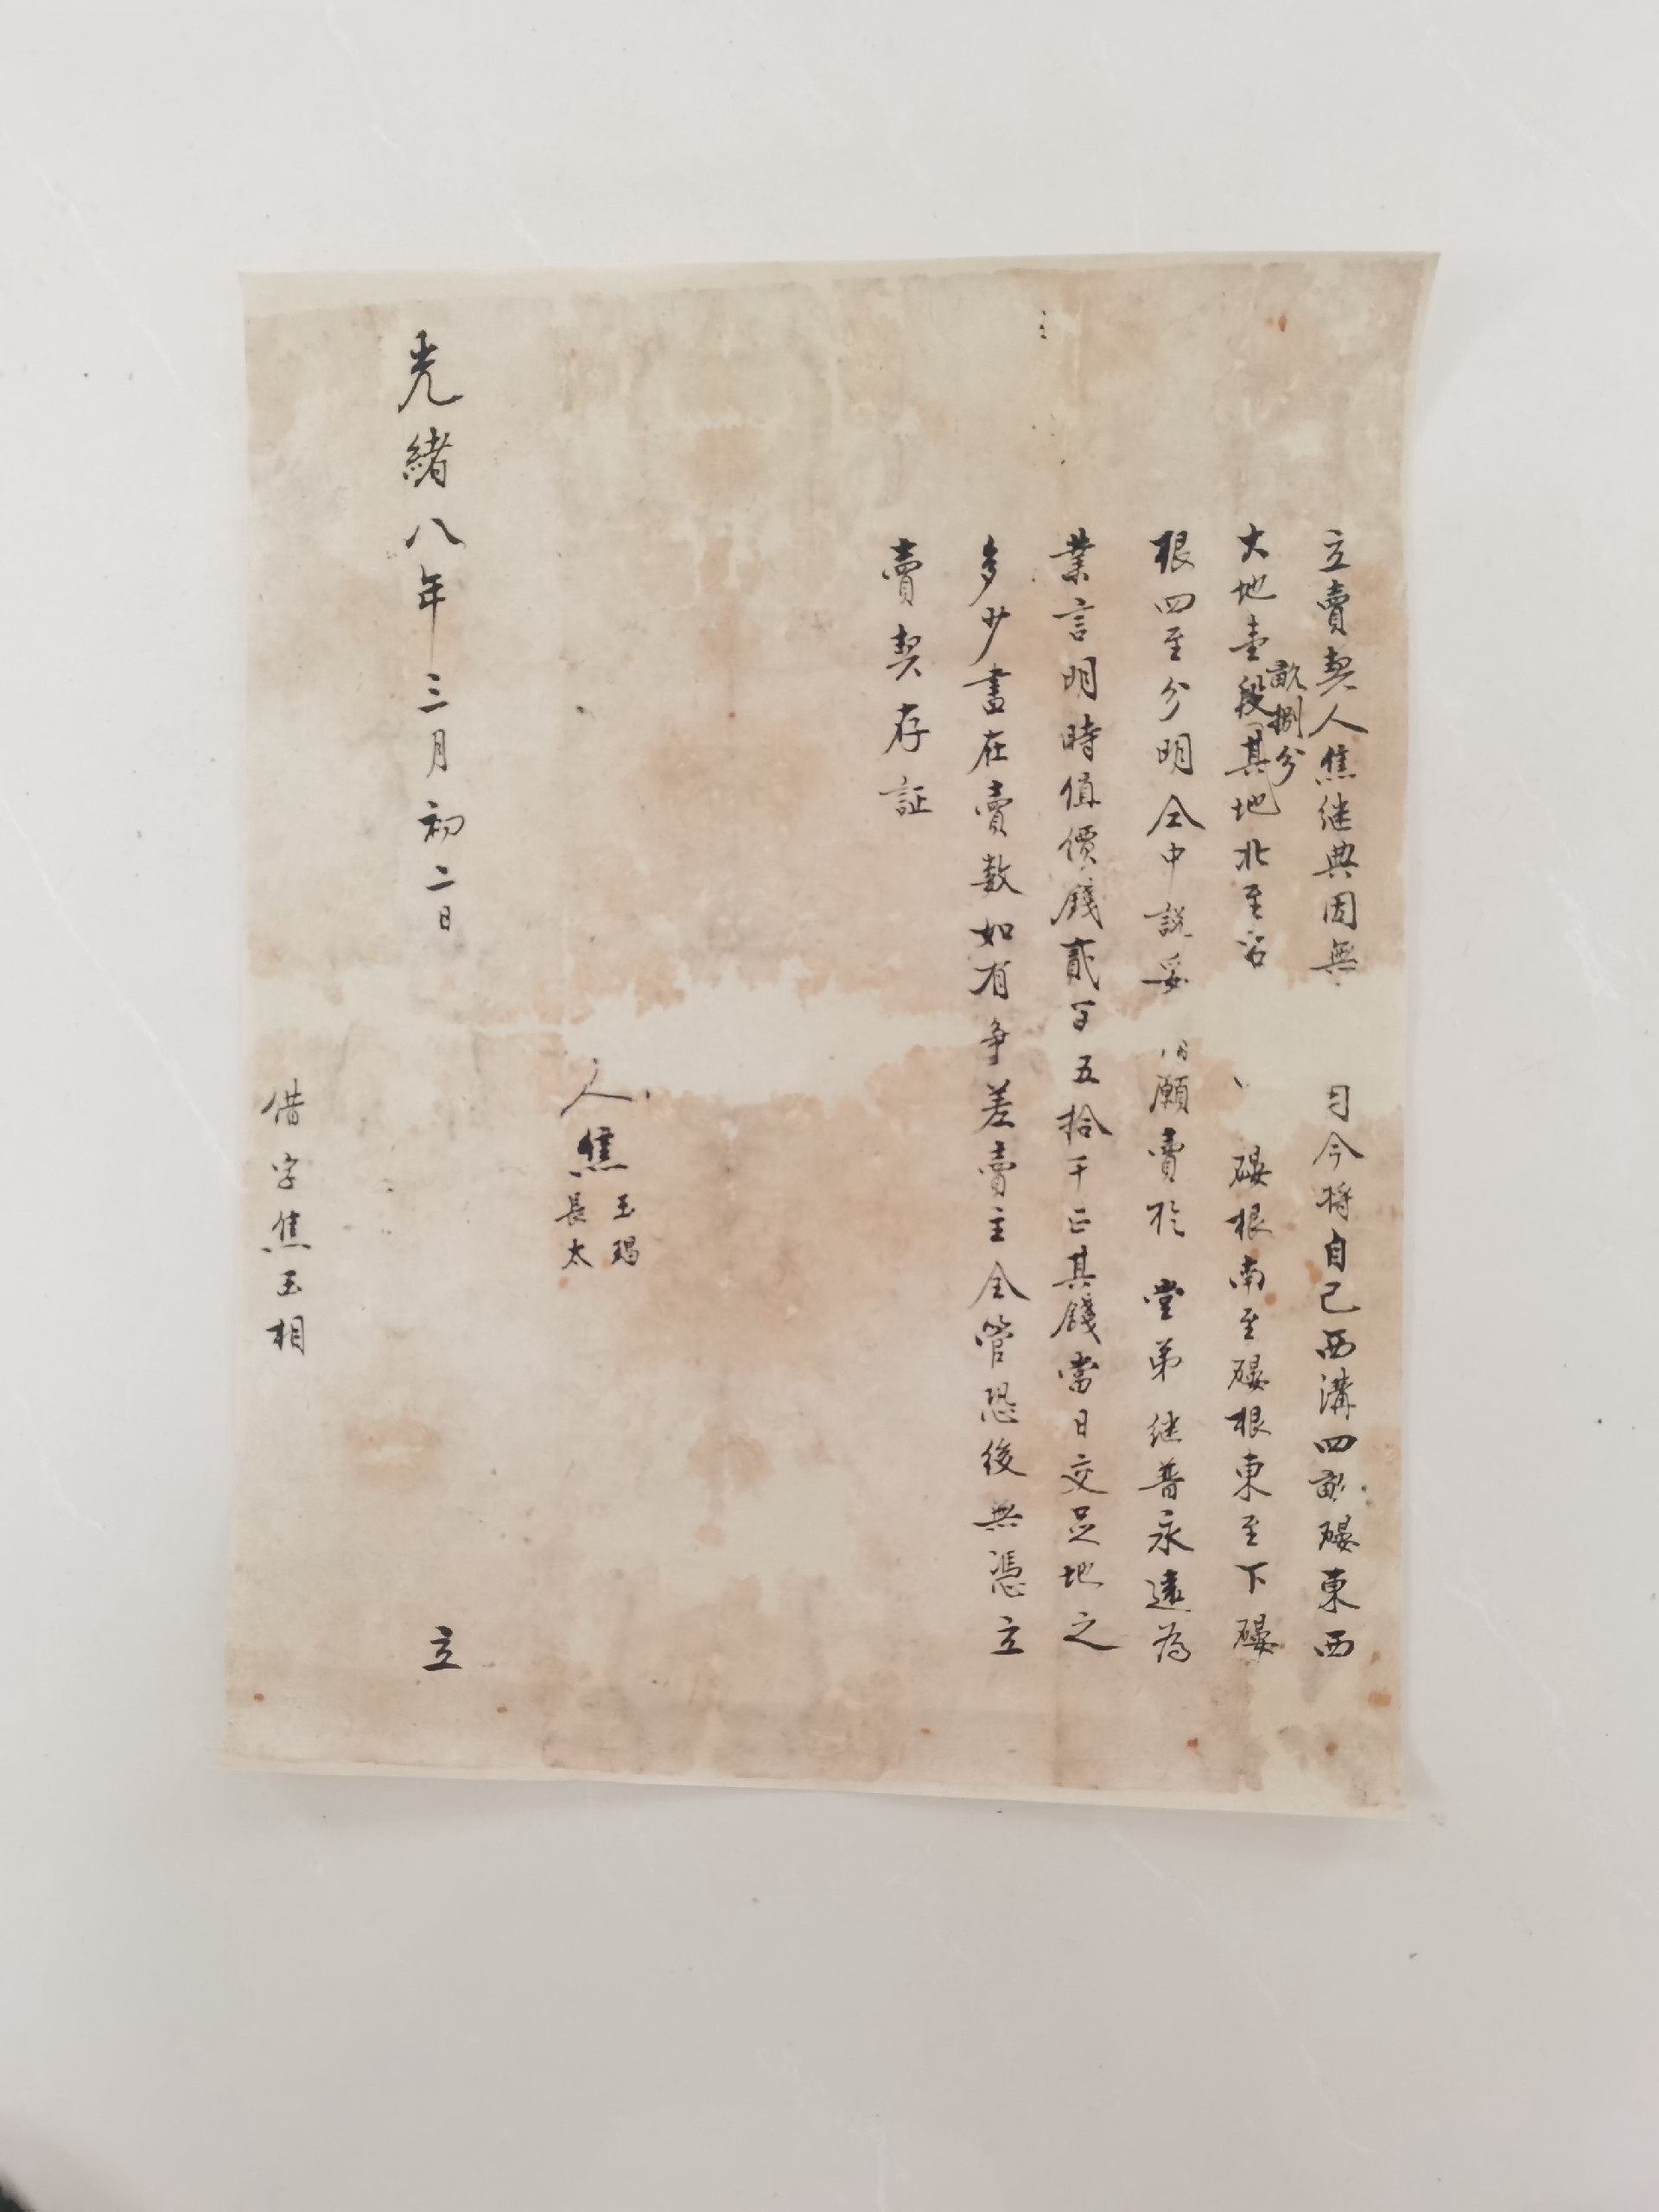 立賣契人焦继典因無 匀今将自己西溝四畝磘東西
大地壹段其地北至 磘根南至磘根東至下磘
畝捌分
根四至分明仝中説妥 願賣於堂弟继普永遠為
業言明時值價錢貳百五拾千正其錢當日交足地之
多少書在賣数如有争差賣主全管恐後無憑立
賣契存証
人焦玉瑒
長太
光緒八年三月初二日 立
借字焦玉相